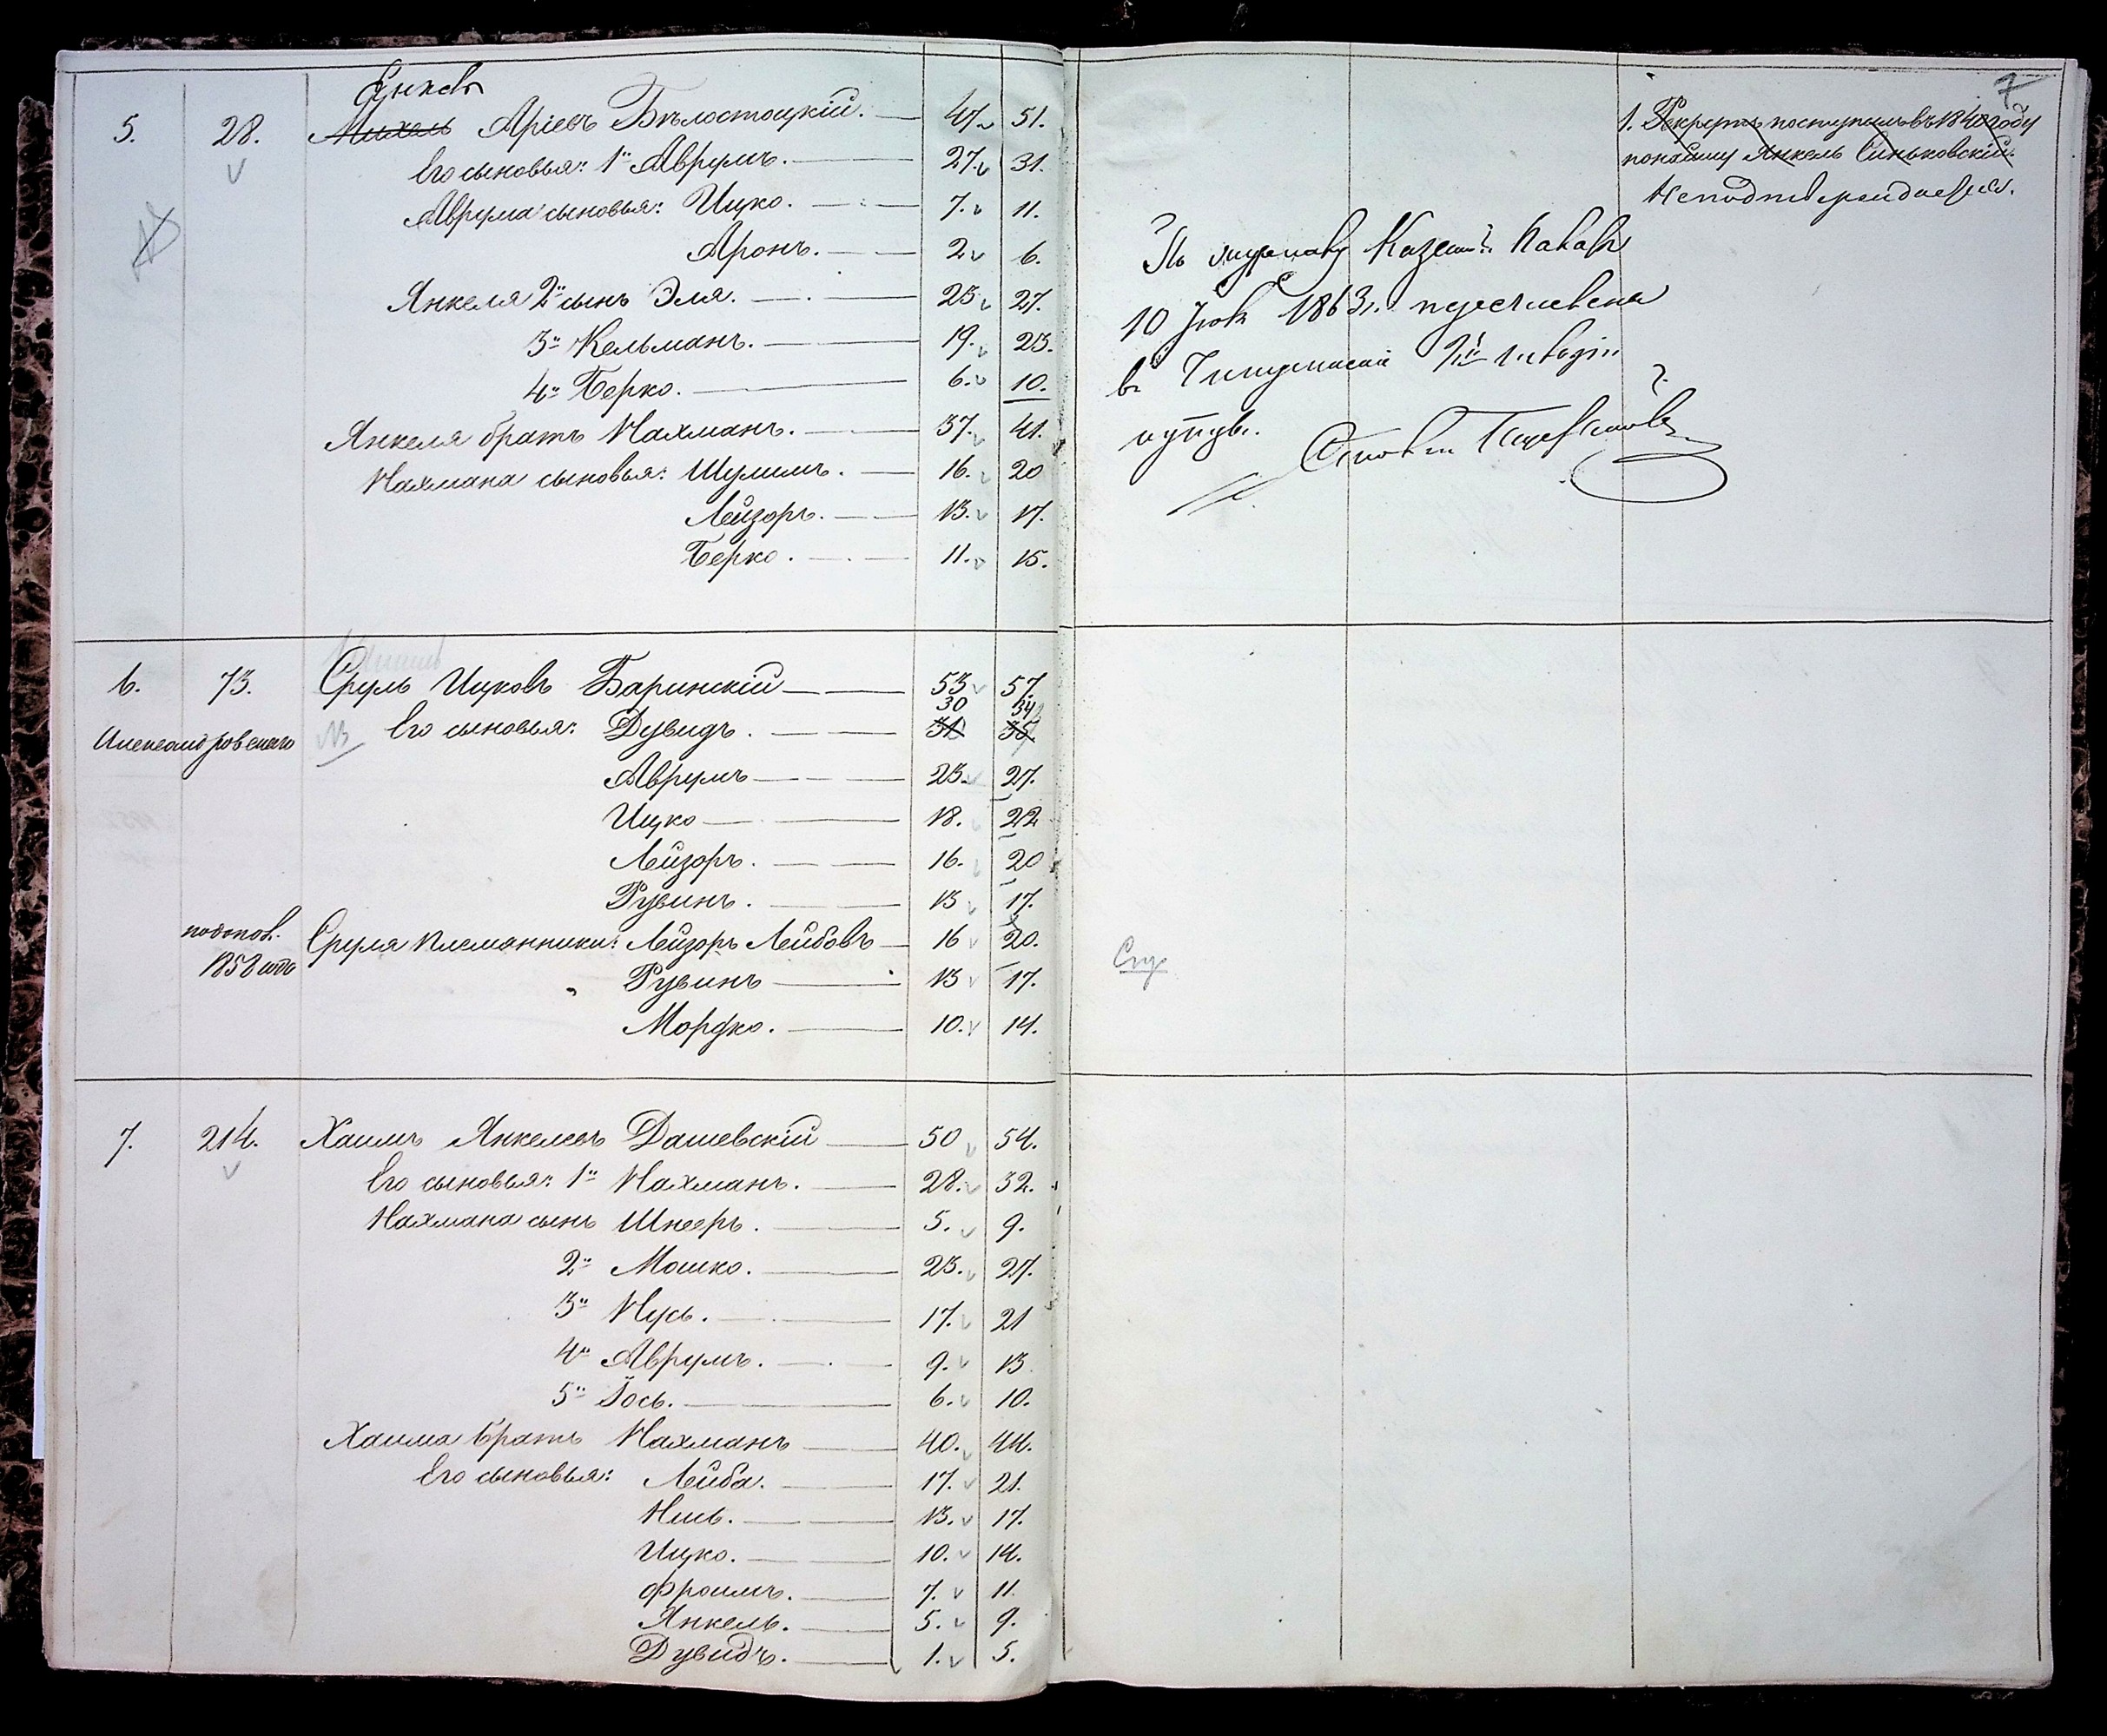 Янкель
5. 28. Михель Аріевъ Бѣлостоцкій. 47. 51.
Его сыновья: 1й Аврумъ. 27. 31.
Аврума сыновья: Ицко. 7. 11.
Аронъ. 2 6.
Янкеля 2й сынъ Эля. 23. 27.
3й Кельманъ. 19. 23.
4й Берко. 6. 10.
Янкеля братъ Нахманъ. 37. 41.
Нахмана сыновья: Шулимъ. 16. 20
Лейзоръ. 13. 17.
Берко. 11. 15.
6. 73. Сруль Ицковъ Баринскій 53 57.
30 34
Александровскаго Его сыновья: Дувидъ. 31 35.
Аврумъ 23. 27.
Ицко 18. 22
Лейзоръ. 16. 20
Рувинъ. 13 17.
1858 года Сруля племянники: Лейзоръ Лейбовъ 16 20.
„ Рувинъ 13 17.
Мордко. 10. 14.
7. 214. Хаимъ Янкелевъ Дашевскій 50 54.
Его сыновья: 1й Нахманъ. 28. 32.
Нахмана сынъ Шнееръ. 5. 9.
2й Мошко. 23. 27.
3й Нусь. 17. 21
4й Аврумъ. 9. 13
5й Іось. 6. 10.
Хаима братъ Нахманъ 40. 44.
Его сыновья: Лейба. 17. 21.
Нись. 13. 17.
Ицко. 10. 14.
Фроимъ. 7. 11.
Янкель. 5. 9.
Дувидъ. 1. 5.
7
1. Рекрутъ поступилъ въ 1840 году
по найму Янкель Синьковскій.
Неподтверждается.
По указу Казен. Палаты
10 1863г. перечисленъ
в 2й гильдіи
купцы.